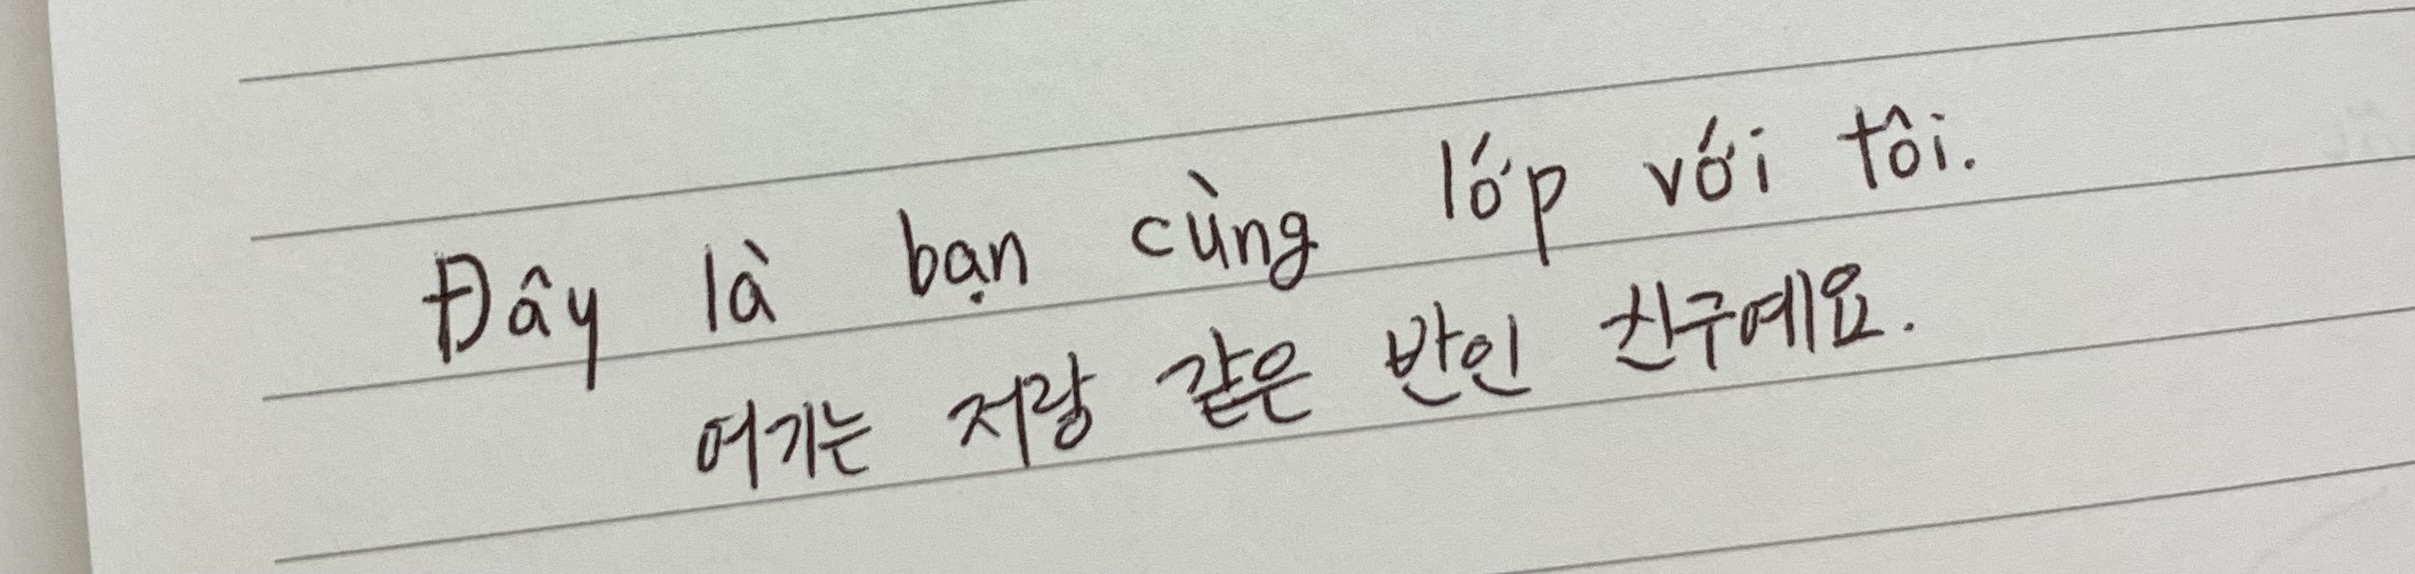 Đây là bạn cùng lớp với tôi.
여기는 저랑 같은 반인 친구예요.